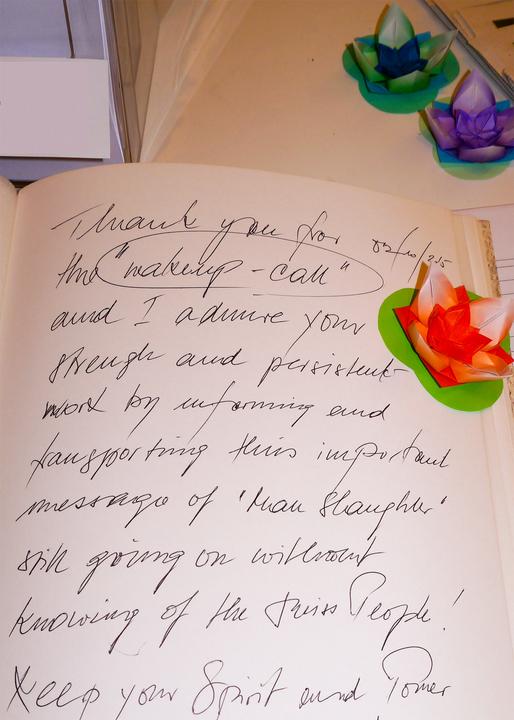 Thank you for
the "wakeup-call"
and I admire your
strength and persistent
work by informing and
transporting this important
message of 'Man Slaughter'
still going on without
knowing of the Swiss People!
Keep your Spirit and Power